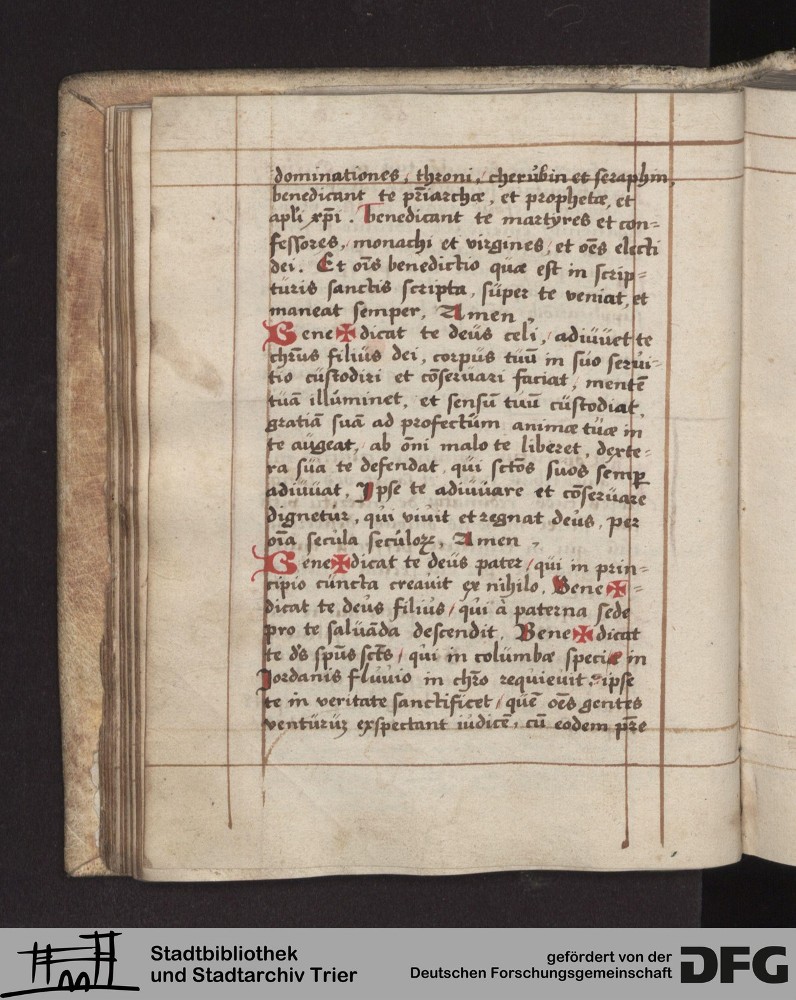 dominationes, throni, cherubin et seraphin,
benedicant te pr̃iarchæ, et prophetæ, et
apl̃i xp̃i. Benedicant te martyres et con=
fessores, monachi et virgines, et oẽs electi
dei. Et oĩs benedictio quæ est in scrip=
turis sanctis scripta, super te veniat, et
maneat semper, Amen,
Bene✠dicat te deus celi, adiuuet te
chr̃us filius dei, corpus tuũ in suo serui=
tio custodiri et cõseruari faciat, mentẽ
tuã illuminet, et sensũ tuũ custodiat,
gratiã suã ad profectum animæ tuæ in
te augeat, ab õni malo te liberet, dexte=
ra sua te defendat, qui sctõs suos semꝑ
adiuuat, Ipse te adiuuare et cõseruare
dignetur, qui viuit et regnat deus, per
oĩa secula seculoꝝ, Amen,
Bene✠dicat te deus pater, qui in prin=
cipio cuncta creauit ex nihilo. Bene✠=
dicat te deus filius, qui à paterna sede
pro te saluãda descendit, Bene✠dicat
te d̃s spũs sct̃s, qui in columbæ specie in
Jordanis fluuio in chr̃o requieuit, ipse
te in veritate sanctificet, quẽ oẽs gentes
venturuꝫ exspectant iudicẽ, cũ eodem pr̃e
Stadtbibliothek
und Stadtarchiv Trier
gefördert von der
Deutschen Forschungsgemeinschaft
DFG